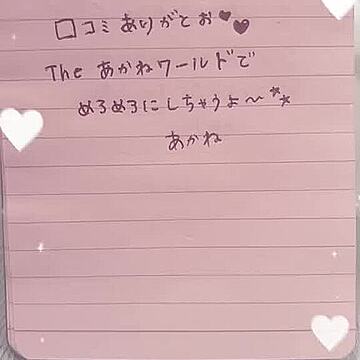 口コミありがとお♥♥
The あかねワールドで
めろめろにしちゃうよ〜**
あかね